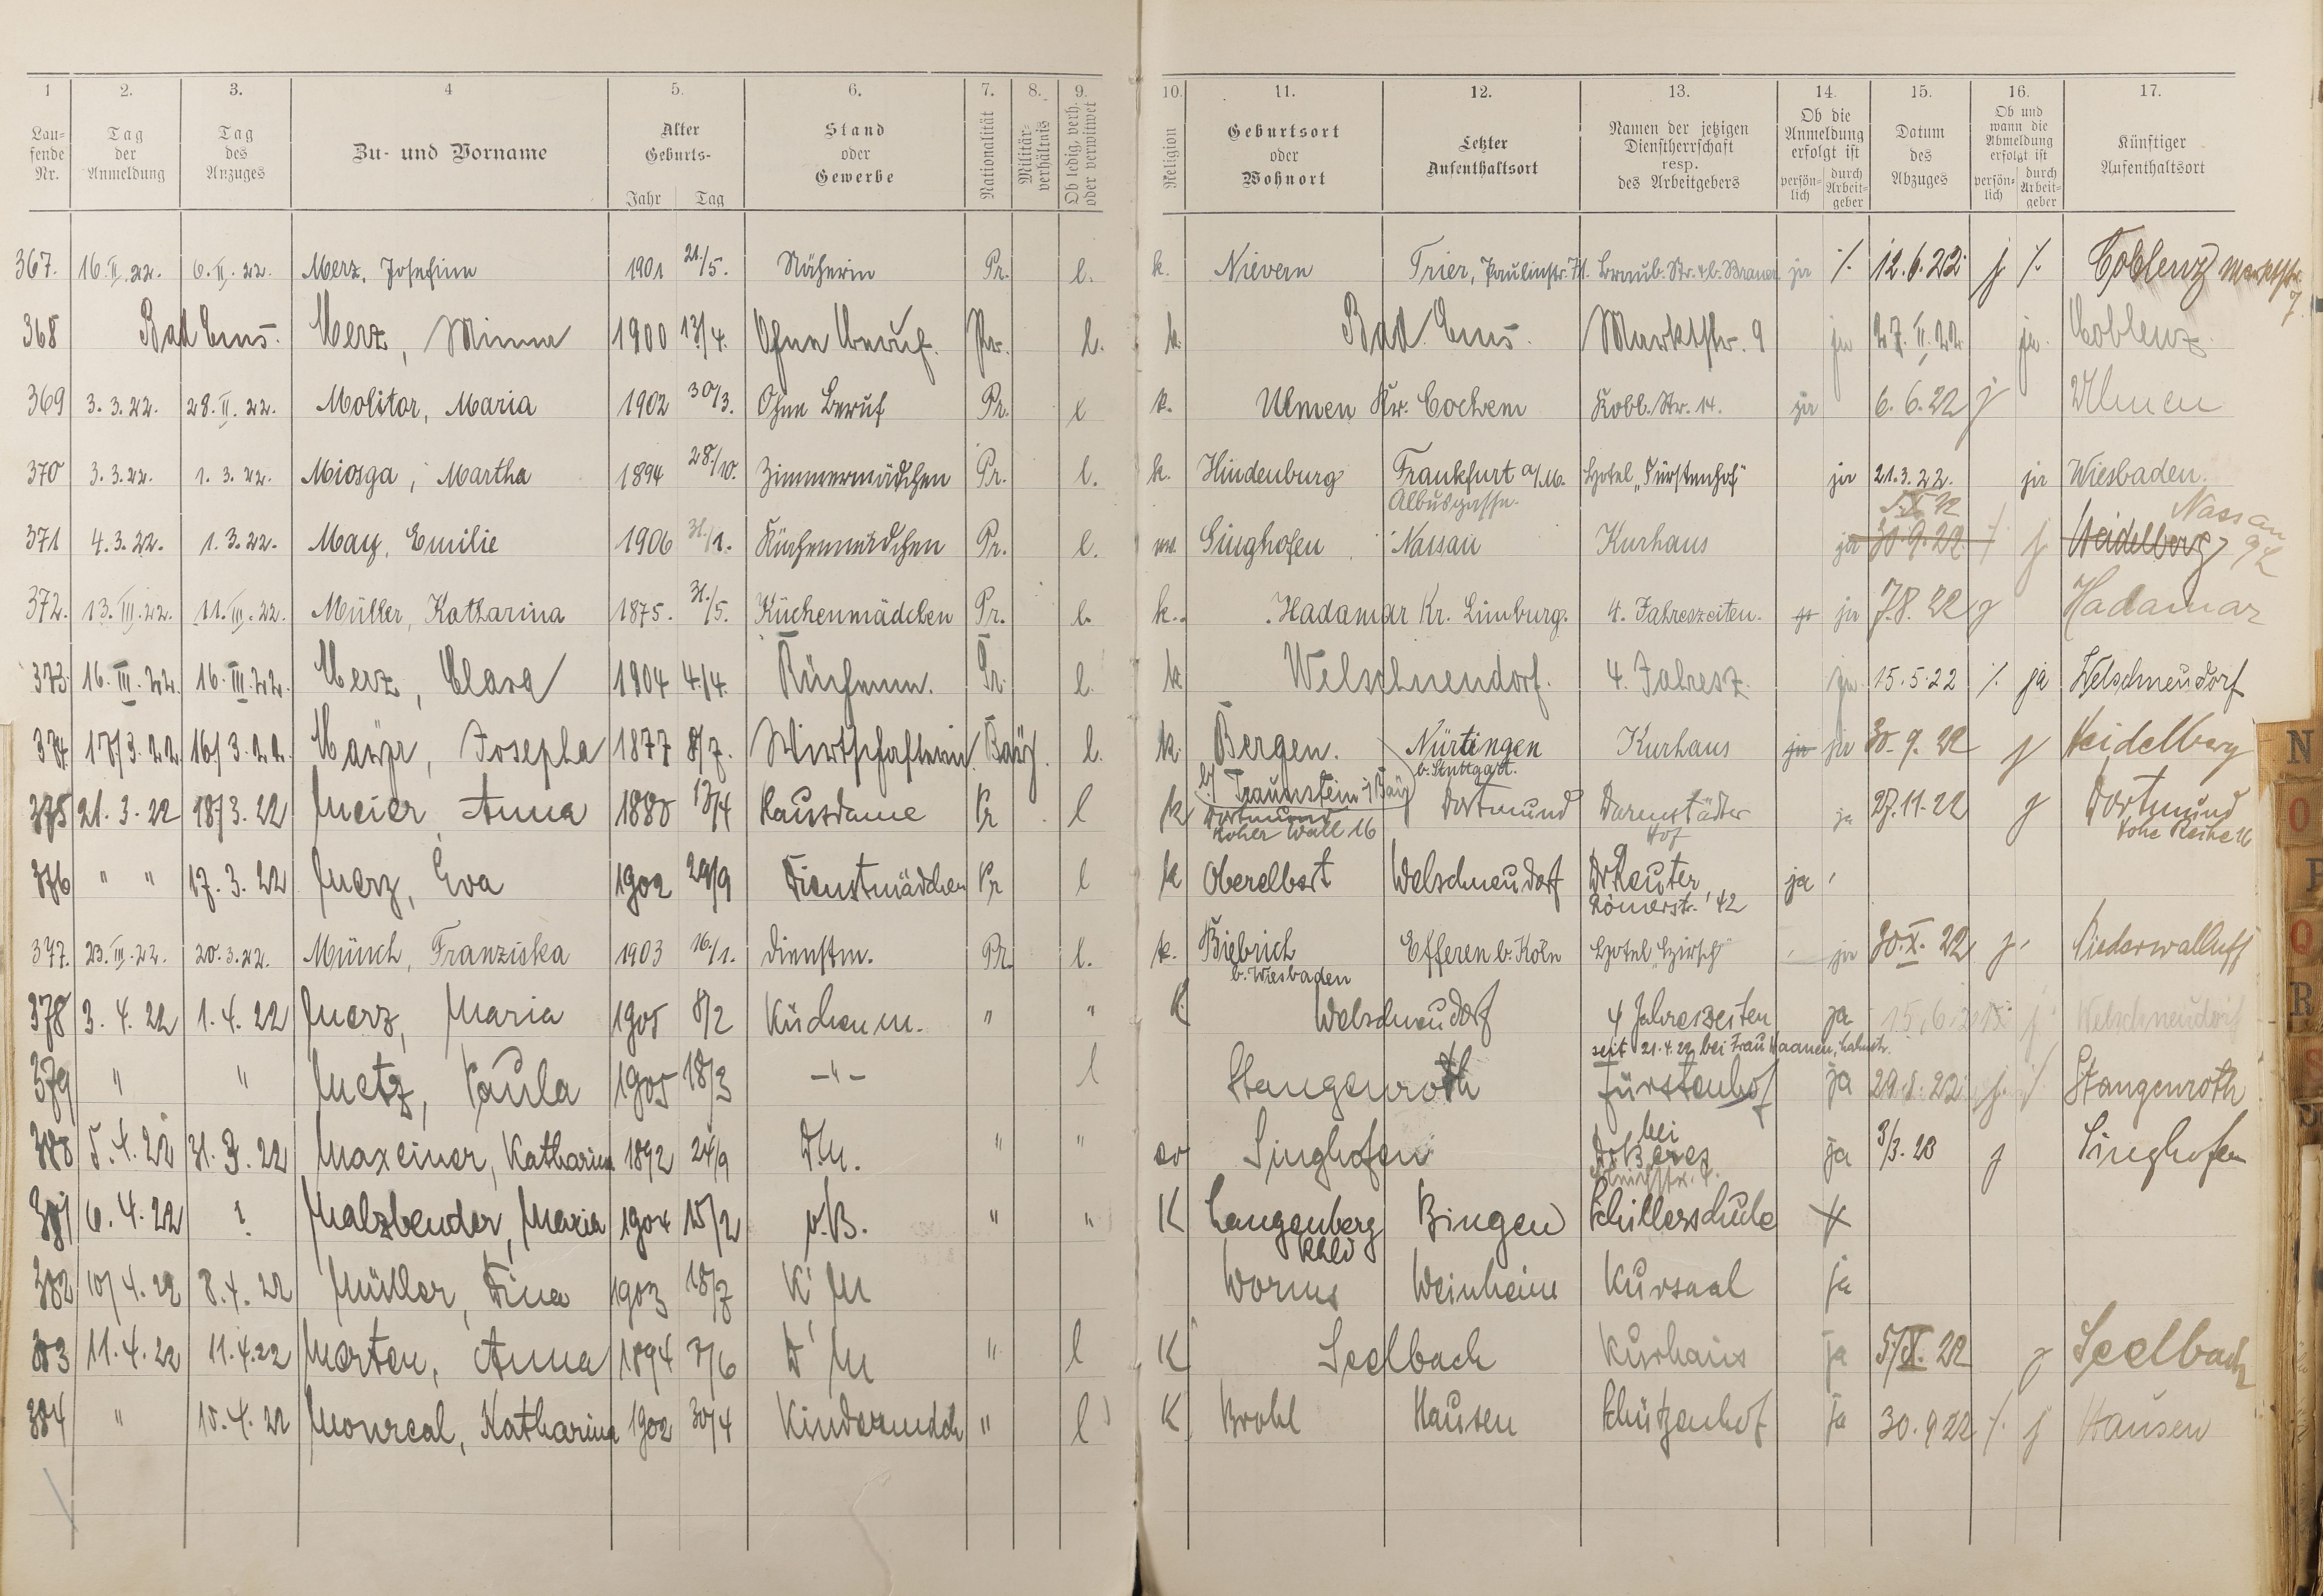 1 2. 3. 4 5. 6. 7. 8. 9. 10. 11. 12. 13. 14. 15. 16. 17.
Lau-
fende
Nr.
Tag
der
Anmeldung
Tag
des
Anzuges
Zu- und Vorname
Alter
Geburts-
Jahr Tag
Stand
oder
Gewerbe
Nationalität
Militär-
verhältnis
Ob ledig, verh.
oder verwitwet
Religion
Geburtsort
oder
Wohnort
Letzter
Aufenthaltsort
Namen der jetzigen
Dienstherrschaft
resp.
des Arbeitgebers
Ob die
Anmeldung
erfolgt ist
persön-
lich
durch
Arbeit-
geber
Datum
des
Abzuges
Ob und
wann die
Abmeldung
erfolgt ist
persön-
lich
durch
Arbeit-
geber
Künftiger
Aufenthaltsort
367. 16.II.22. 6.II.22. Merz, Josefine 1901 21./5. Näherin Pr. l. k. Nievern Trier, Paulinstr. ja ./. 12.6.22 j ./. Coblenz Marktstr.
7
368 Bad Ems. Merz, Minna 1900 13/4. Ohne Beruf. Pr. l. k. Bad Ems. Marktstr. 9 ja 27.II.22 ja. Coblenz.
369 3.3.22. 28.II.22. Molitor, Maria 1902 30/3. Ohne Beruf Pr. l k. Ulmen Kr. Cochem Kobl. Str. 14. ja 6.6.22 j Ulmen
370 3.3.22. 1.3.22. Miosga, Martha 1894 28./10. Zimmermädchen Pr. l. k. Hindenburg Frankfurt a/M. Hotel „Fürstenhof" ja 21.3.22. ja Wiesbaden.
Albusgasse.
371 4.3.22. 1.3.22. May, Emilie 1906 31./1. Küchenmädchen Pr. l. Singhofen Nassau Kurhaus ja 30.9.22 ./. j Heidelberg Nassau
372. 13.III.22. 11.III.22. Müller, Katharina 1875. 31./5. Küchenmädchen Pr. l. k. Hadamar Kr. Limburg. 4. Jahreszeiten. ja ja 7.8.22 j Hadamar
373. 16.III.22. 16.III.22. Merz, Clara 1904 4./4. Küchenm. Pr. l. k Welschneudorf. 4. Jahresz. ja 15.5.22 ./. ja Welschneudorf
374. 17/3.22 16/3.22. Mayr, Josepha 1877 8/7. Wirtschafterin. Bay. l. k. Bergen. Nürtingen Kurhaus ja ja 30.9.22 j Heidelberg
b/ Traunstein i/Bay b. Stuttgart.
375 21.3.22 18/3.22 Meier Anna 1880 13/4 Hausdame Pr l k Dortmund Dortmund Darmstädter ja 27.11.22 j Dortmund
Hoher Wall 16 Hof Hohe Reihe 16
376 " " 17.3.22 Merz, Eva 1902 29/9 Dienstmädchen Pr l k Oberelbert Welschneudorf Dr Reuter ja
Römerstr. 42
377. 23.III.22. 20.3.22. Münch, Franziska 1903 16./1. Dienstm. Pr. l. k. Biebrich Efferen b. Köln Hotel „Hirsch" ja 30.X.22 j. Niederwalluff
b. Wiesbaden
378 3.4.22 1.4.22 Merz, Maria 1905 8/2 Küchenm. " " K. Welschneudorf 4 Jahreszeiten ja 15.6.22 j Welschneudorf
seit 21.4.22 bei Frau Haanen, Lahnstr.
379 " " Metz, Paula 1905 18/3 –"– l Stangenroth Fürstenhof ja 29.8.22 j. ./. Stangenroth
380 5.4.22 31.3.22 Maxeiner, Katharina 1892 24/9 D.M. " " ev Singhofen bei ja 3/3.23 j Singhofen
381 6.4.22 ? Malzbender, Maria 1904 15/2 o.B. " " K Langenberg Bingen Schillerschule
Rhld
382 10/4.22 8.4.22 Müller, Tina 1903 18/7 K'M Worms Weinheim Kursaal ja
383 11.4.22 11.4.22 Morten, Anna 1894 7/6 D'M " l K Seelbach Kurhaus ja 5/X.22 j Seelbach
384 " 15.4.22 Monreal, Katharina 1902 30/4 Kindermdch " l K Brohl Hausen Schützenhof ja 30.9.22 ./. j Hausen
N
O
P
Q
R
S